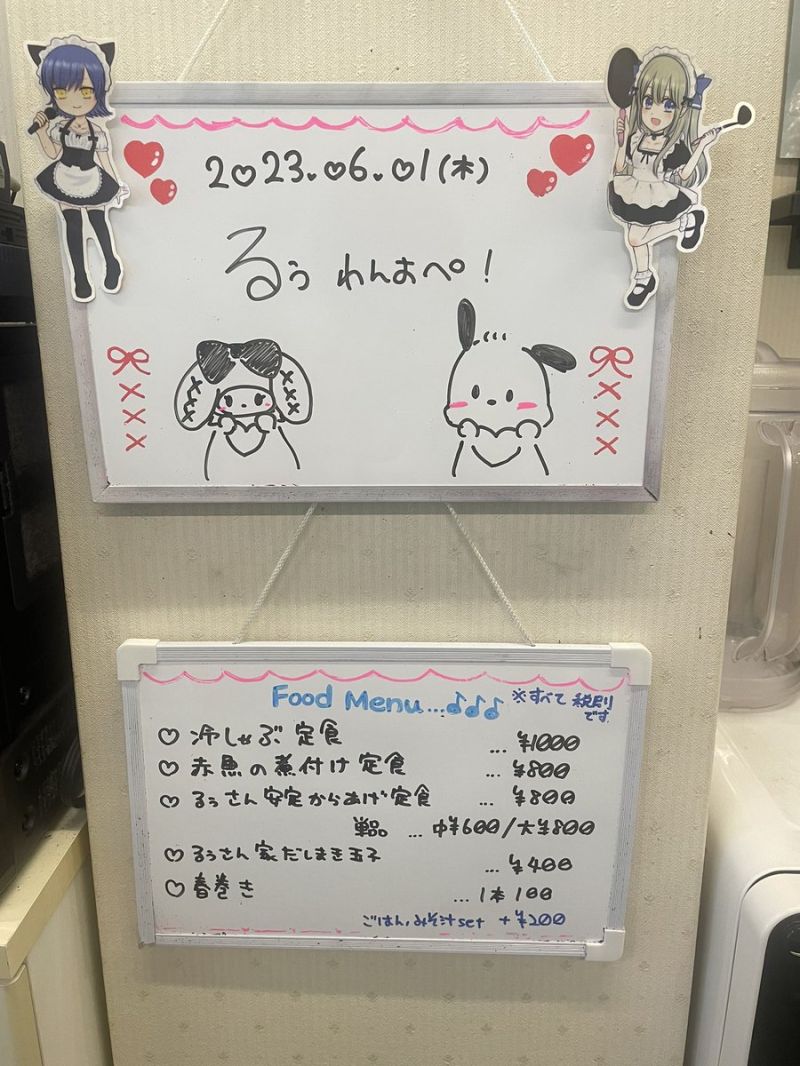 2023.06.01(木)
るぅ わんおぺ！
Food Menu...♪♪♪
※すべて 税別です。
♡冷しゃぶ定食 ... ¥1000
♡赤魚の煮付け定食 ... ¥800
♡るぅさん安定からあげ定食 ... ¥800
単品 ... 中¥600/大¥800
♡るぅさん家だしまき玉子 ... ¥400
♡春巻き ... 1本 100
ごはん,みそ汁set +¥200